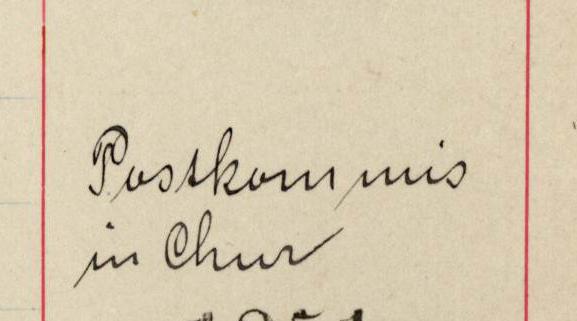 Postkommis
in Chur